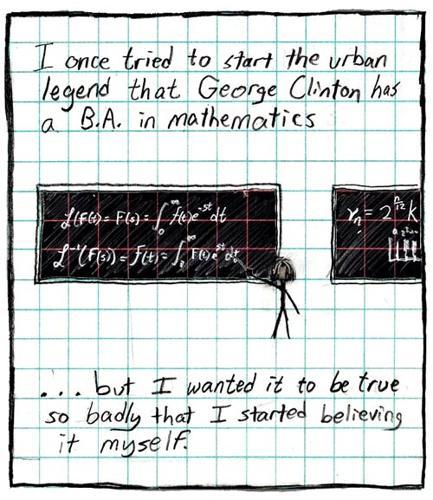 I once tried to start the urban
legend that George Clinton has
a B.A. in mathematics
ℒ(F(t)) = F(s) = ∫₀^∞ f(t)e^-st dt
ℒ⁻¹(F(s)) = f(t) = ∫
rₙ = 2^(n/12) k
.... but I wanted it to be true
so badly that I started believing
it myself.